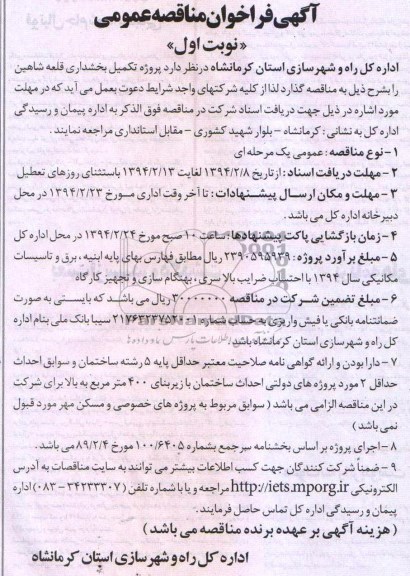 آگهی فراخوان مناقصه عمومی
«نوبت اول»
اداره کل راه و شهرسازی استان کرمانشاه درنظر دارد پروژه تکمیل بخشداری قلعه شاهین
را بشرح ذیل به مناقصه گذارد لذا از کلیه شرکتهای واجد شرایط دعوت بعمل می آید که در مهلت
مورد اشاره در ذیل جهت دریافت اسناد شرکت در مناقصه فوق الذکر به اداره پیمان و رسیدگی
اداره کل به نشانی : کرمانشاه - بلوار شهید کشوری - مقابل استانداری مراجعه نمایند .
۱- نوع مناقصه : عمومی یک مرحله ای
۲- مهلت دریافت اسناد : از تاریخ ۱۳۹۴/۲/۸ لغایت ۱۳۹۴/۲/۱۳ باستثنای روزهای تعطیل
۳- مهلت و مکان ارسال پیشنهادات : تا آخر وقت اداری مورخ ۱۳۹۴/۲/۲۳ در محل
دبیرخانه اداره کل می باشد .
۴- زمان بازگشایی پاکت پیشنهادها : ساعت ۱۰ صبح مورخ ۱۳۹۴/۲/۲۴ در محل اداره کل
۵- مبلغ برآورد پروژه : ۲۳۹۰۵۹۵۹۳۹ ریال مطابق فهارس بهای پایه ابنیه ، برق و تاسیسات
مکانیکی سال ۱۳۹۴ با احتساب ضرایب بالاسری ، بهنگام سازی و تجهیز کارگاه
۶- مبلغ تضمین شرکت در مناقصه ۳۰۰۰۰۰۰۰۰ ریال می باشد که بایستی به صورت
ضمانتنامه بانکی یا فیش واریزی به حساب شماره سیبا بانک ملی بنام اداره
کل راه و شهرسازی استان کرمانشاه باشد .
۷- دارا بودن و ارائه گواهی نامه صلاحیت معتبر حداقل پایه ۵ رشته ساختمان و سوابق احداث
حداقل ۲ مورد پروژه های دولتی احداث ساختمان با زیربنای ۴۰۰ متر مربع به بالا برای شرکت
در این مناقصه الزامی می باشد ( سوابق مربوط به پروژه های خصوصی و مسکن مهر مورد قبول
نمی باشد )
۸- اجرای پروژه بر اساس بخشنامه سرجمع بشماره ۱۰۰/۶۴۰۵ مورخ ۸۹/۲/۴ می باشد .
۹- ضمناً شرکت کنندگان جهت کسب اطلاعات بیشتر می توانند به سایت مناقصات به آدرس
الکترونیکی http://iets.mporg.ir مراجعه و یا با شماره تلفن ( ۳۴۲۳۳۳۰۷ - ۰۸۳ ) اداره
پیمان و رسیدگی اداره کل تماس حاصل فرمایند.
( هزینه آگهی بر عهده برنده مناقصه می باشد )
اداره کل راه و شهرسازی استان کرمانشاه